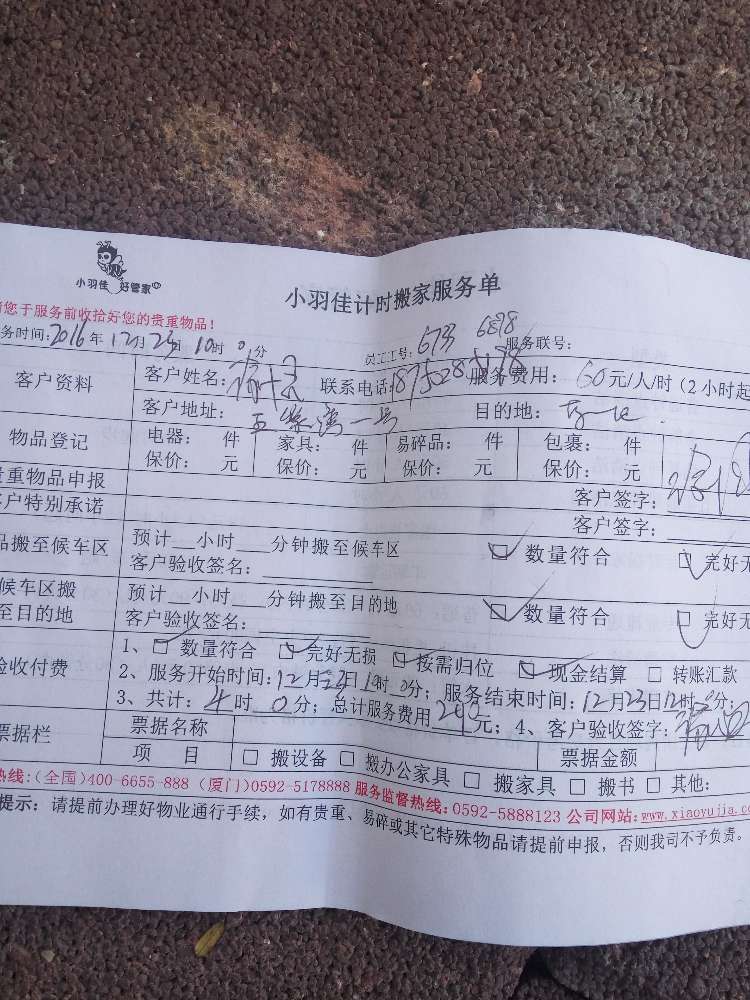 小羽佳 好管家
小羽佳计时搬家服务单
您于服务前收拾好您的贵重物品！
务时间：2016年12月23日10时0分 员工工号：673 6878 服务联号：
客户资料 客户姓名： 联系电话： 服务费用：60元/人/时（2小时起
客户地址：五缘湾一号 目的地：
物品登记 电器： 件 家具： 件 易碎品： 件 包裹： 件
保价： 元 保价： 元 保价： 元 保价： 元
贵重物品申报 客户签字：
客户特别承诺 客户签字：
品搬至候车区 预计 小时 分钟搬至候车区 数量符合 完好无
客户验收签名：
候车区搬至目的地 预计 小时 分钟搬至目的地 数量符合 完好无
客户验收签名：
验收付费 1、□ 数量符合 □ 完好无损 □ 按需归位 □ 现金结算 □ 转账汇款
2、服务开始时间：12月23日10时0分；服务结束时间：12月23日12时0分；
3、共计：4时0分；总计服务费用240元；4、客户验收签字：
票据栏 票据名称 票据金额
项 目 □ 搬设备 □ 搬办公家具 □ 搬家具 □ 搬书 □ 其他：
热线：（全国）400-6655-888（厦门）0592-5178888 服务监督热线：0592-5888123 公司网站：www.xiaoyujia.co
提示：请提前办理好物业通行手续，如有贵重、易碎或其它特殊物品请提前申报，否则我司不予负责。